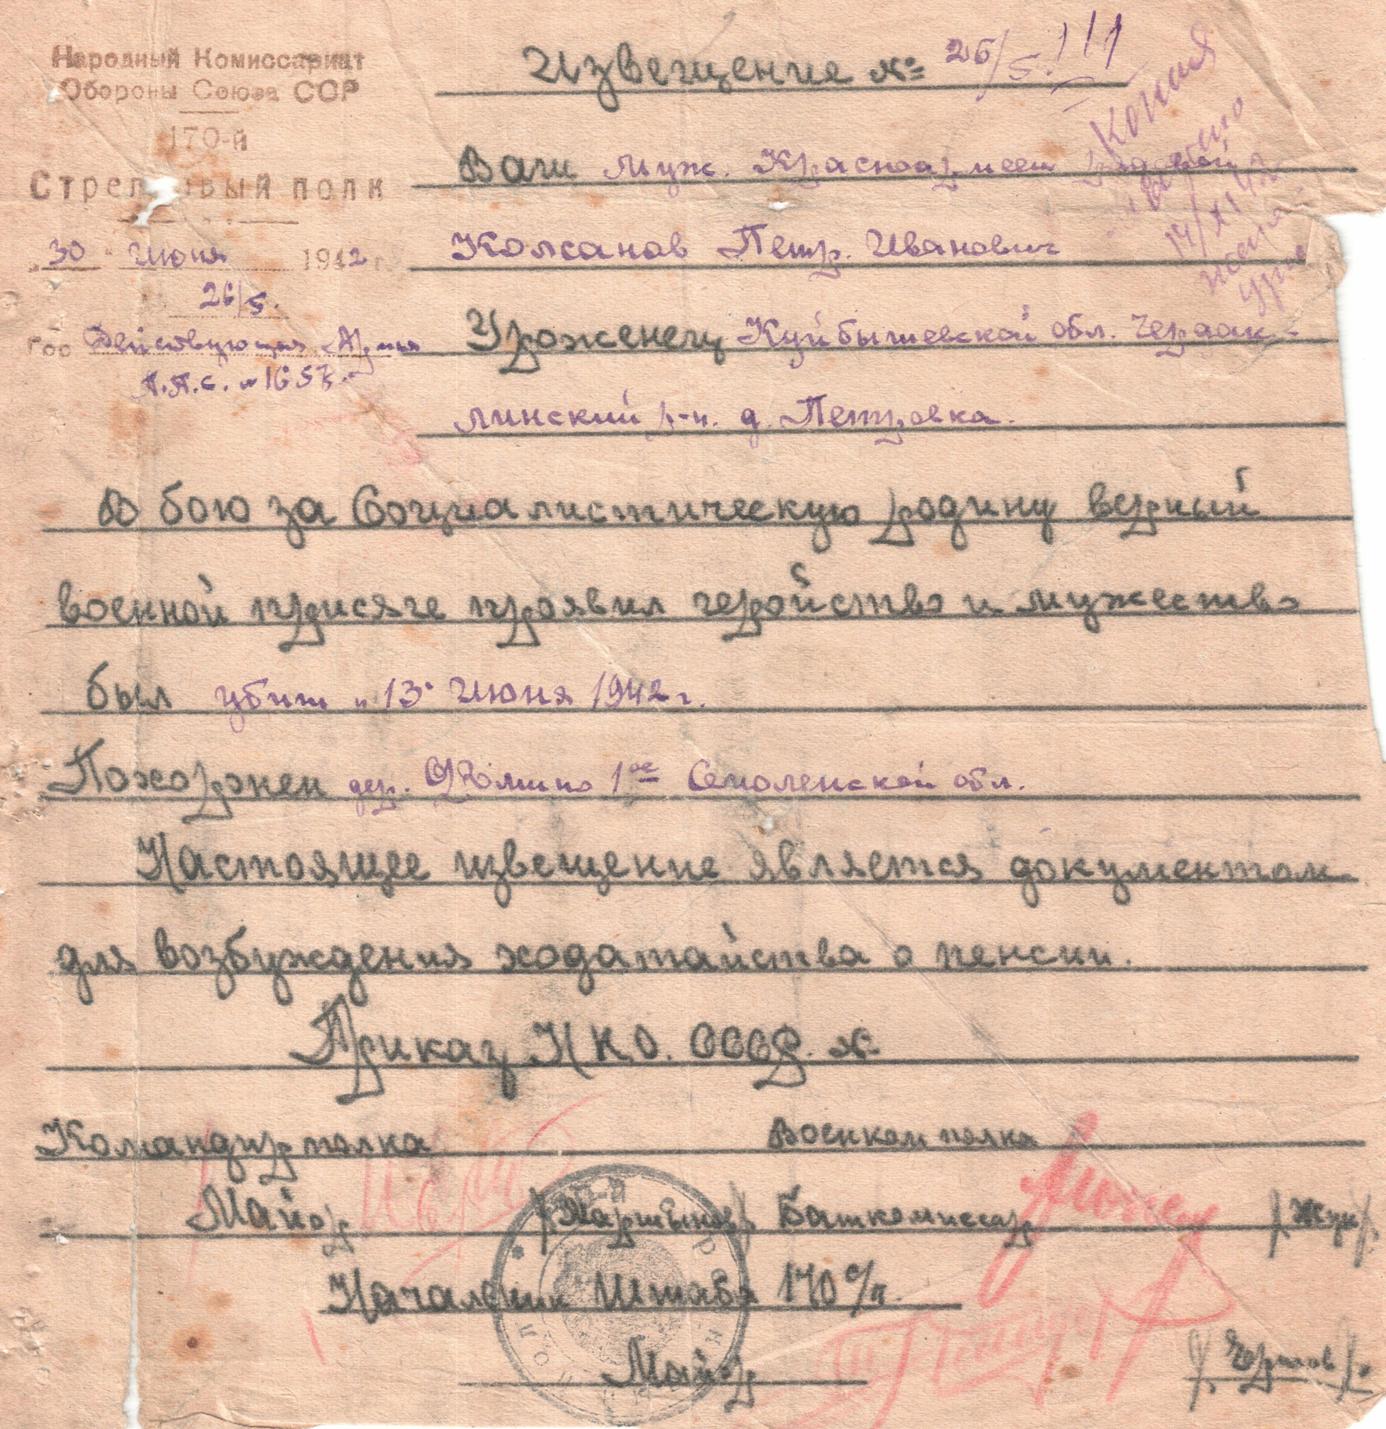 Народный Комиссариат
Обороны Союза ССР
170-й
Стрелковый полк
30 Июня 1942 г.
26/5.
Действующая Армия
п.п.с. № 1657.
Извещение № 26/5.
Копия
Ваш муж. Красноармеец рядовой
Колсанов Петр. Иванович
Уроженец Куйбышевской обл. Чердак-
линский р-н. д. Петровка.
В бою за Социалистическую родину верный
военной присяге проявил геройство и мужество
был убит "13" Июня 1942 г.
Похоронен дер. Фомино 1ое Смоленской обл.
Настоящее извещение является документом
для возбуждения ходатайства о пенсии.
Приказ Н К О. СССР. №
Командир полка Военком полка
Майор /Мартынов/ Баткомиссар /Жук/
Начальник Штаба 170 с/п.
Майор